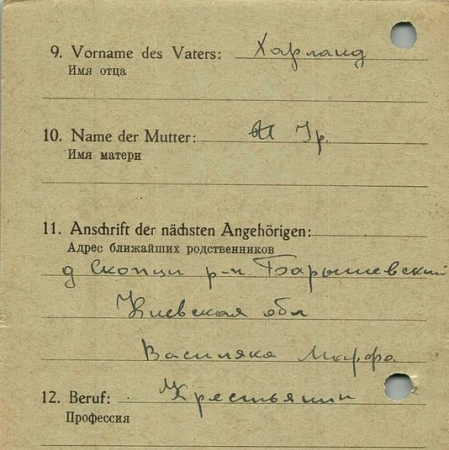 9. Vorname des Vaters: Харланд
Имя отца
10. Name der Mutter: Ир.
Имя матери
11. Anschrift der nächsten Angehörigen:
Адрес ближайших родственников
д Скопци р-н Барышевский
Киевская обл
Василяка Марфа
12. Beruf: Крестьянин
Профессия